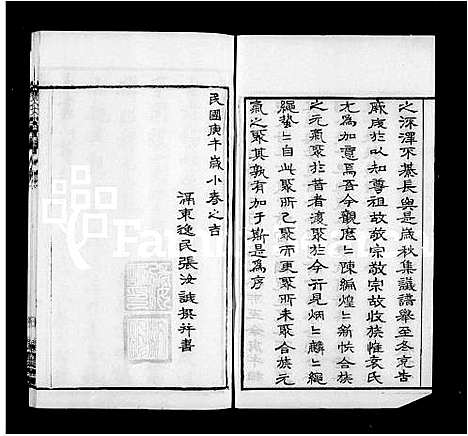 之深澤不綦長與是歲秋集議譜舉至冬克告
蕆于以知尊祖故敬宗敬宗故收族惟袁氏
尤為加意焉吾今觀麐﹦陳編煌﹦新帙合族
之元氣聚於昔者復聚於今行見烟﹦麟﹦繩
繩蟄﹦此聚所已聚而更聚所未聚合族元
氣之聚其孰有加于斯是為序
民國庚午歲小春之吉
涌東逸民張汝誠撰并書